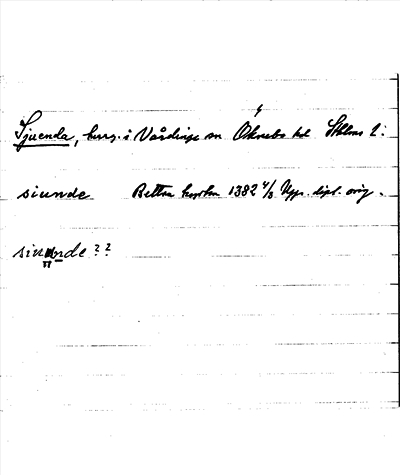 Sjuenda, herrg. i Vårdinge sn Öknebo hd Sthlms l:
siunde Bettna kyrka 1382 4/3 Upps. dipl. orig.
siunde ??